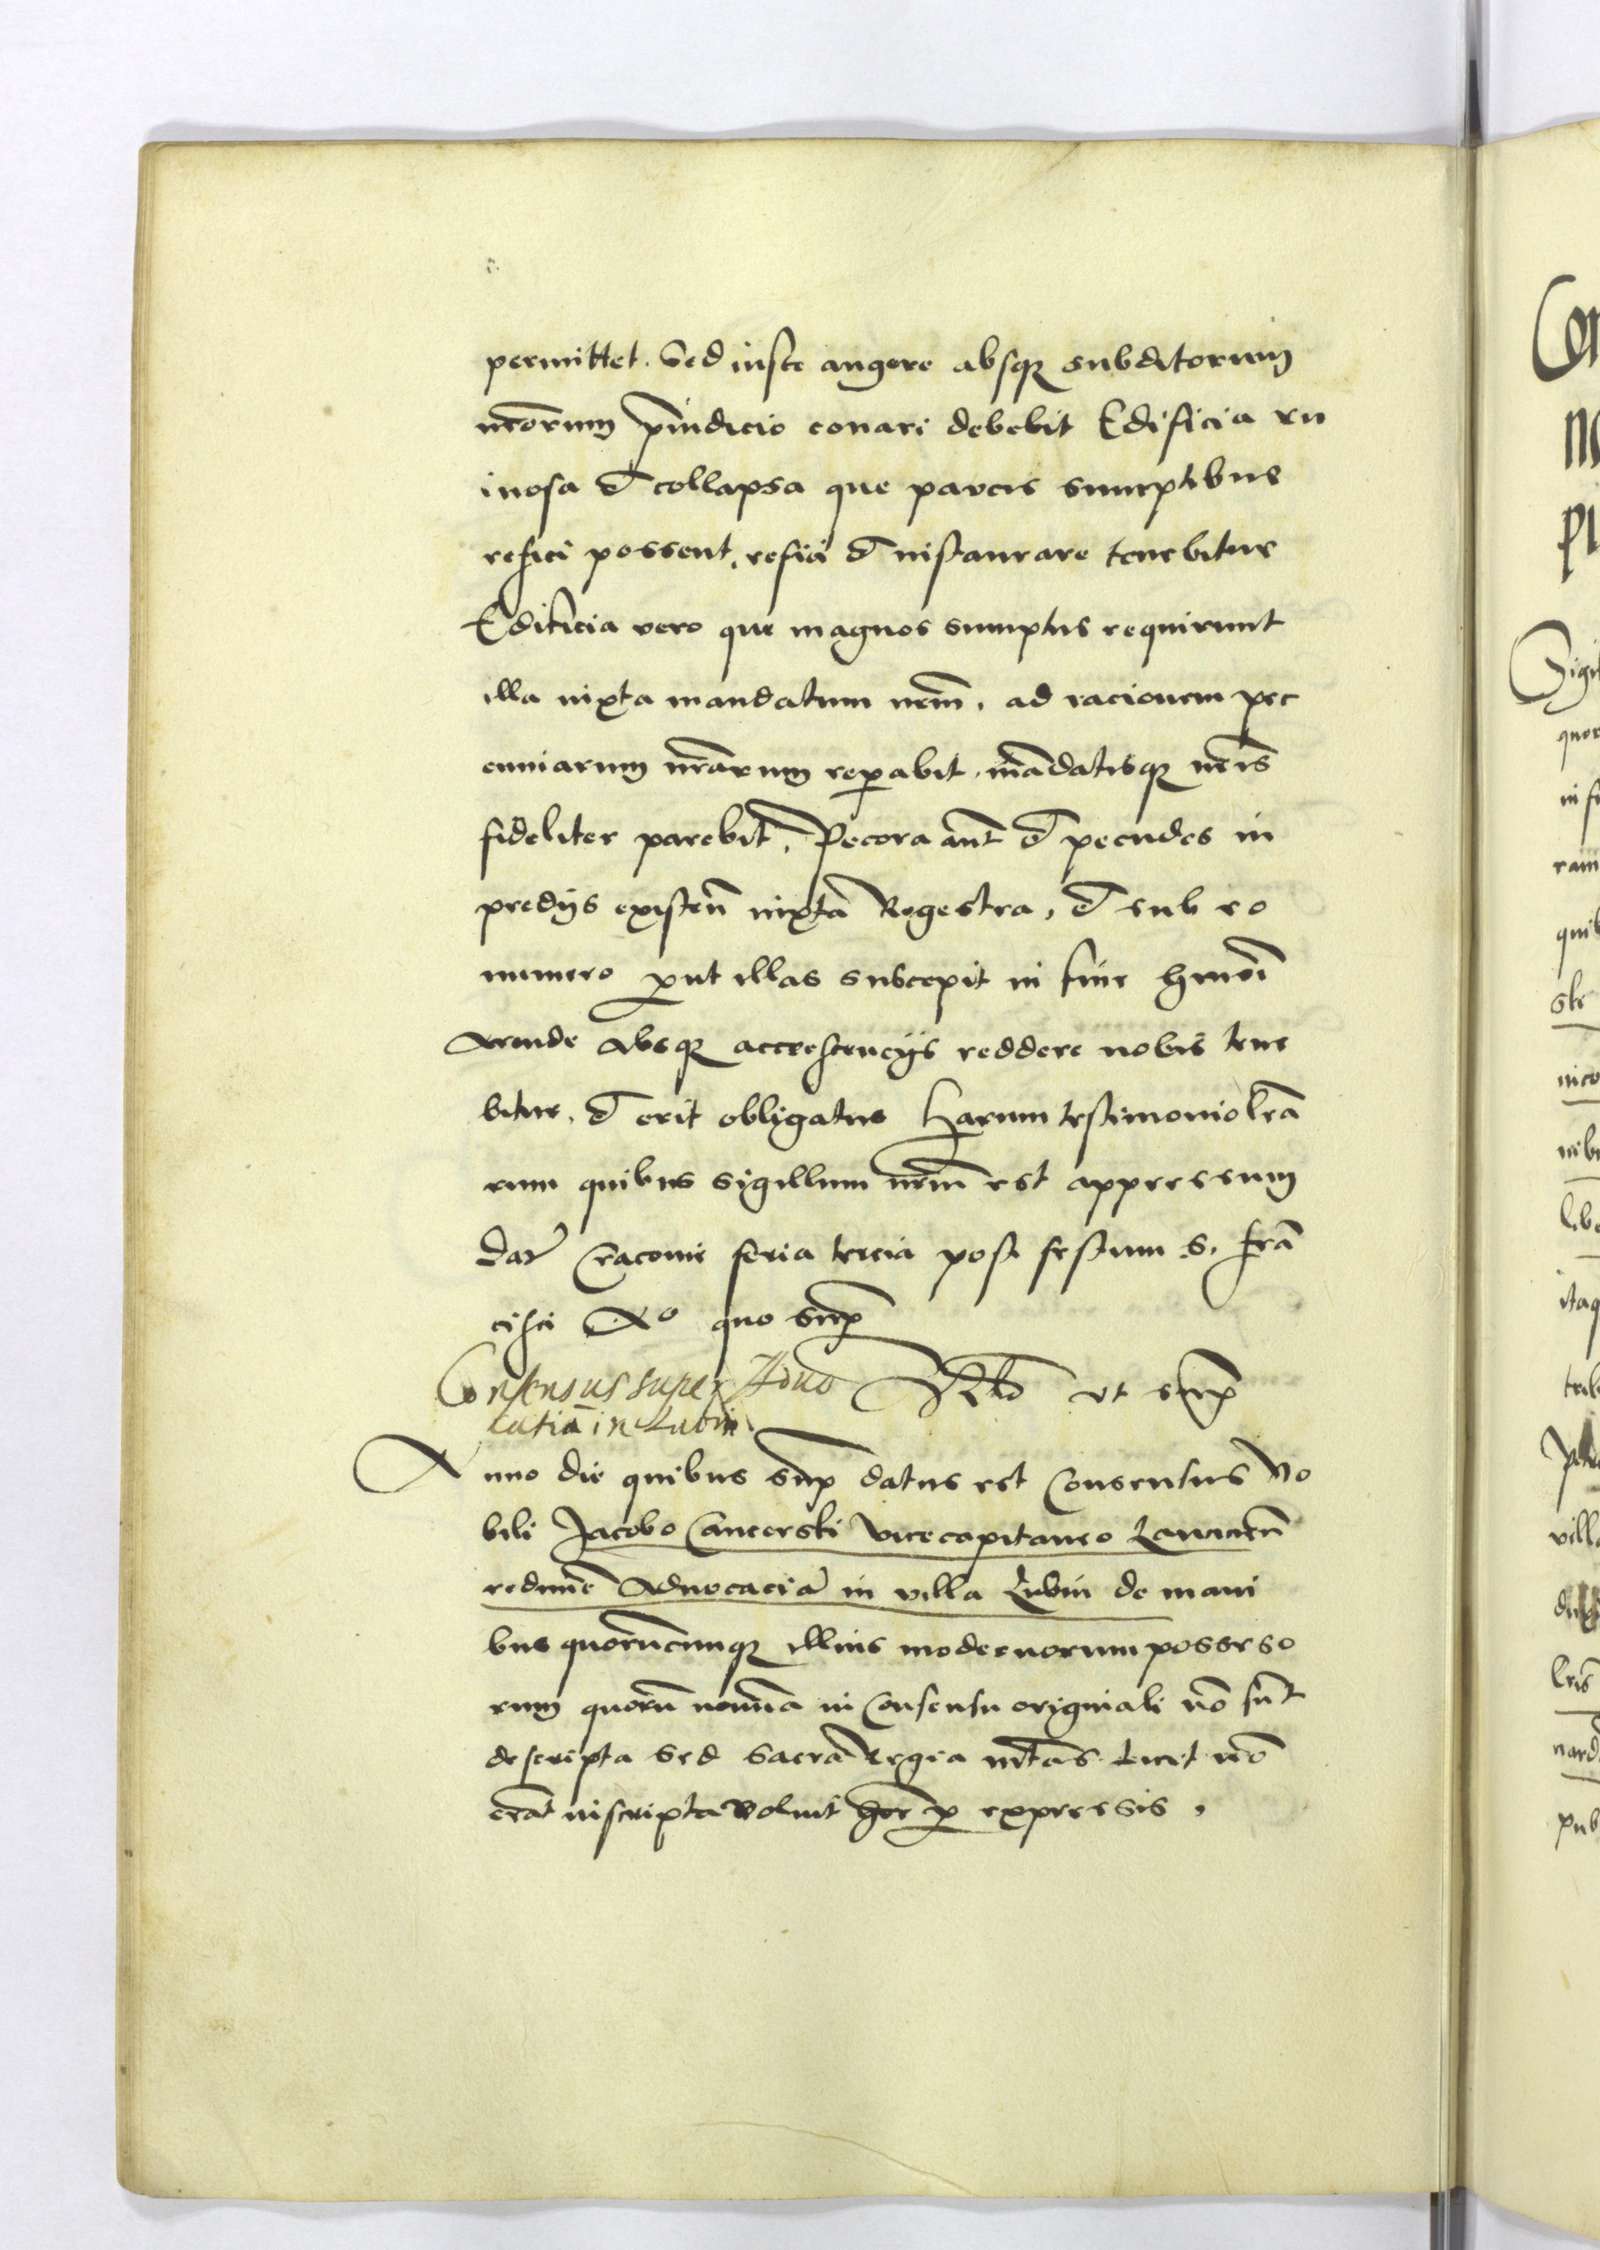 permittet. Sed iuste augere absq subditorum
nrorum preiudicio conari debebit Edificia ru
inosa et collapsa que parvis sumptibus
refici possent, refici et instaurare tenebitur
Edificia vero que magnos sumptus requirunt
illa iuxta mandatum nrm, ad racionem pec
cuniarum nrarum reparabit, mandatisq nris
fideliter parebit, Pecora aut et pecudes in
predys existen iuxta Regestra, et sub eo
numero prout illas suscepit in fine hmoi
Arende absq accrescencys reddere nobis tene
bitur, et erit obligatus Harum testimonio lra
rum quibus sigillum nrm est appressum
Dat Cracovie feria tercia post festum S. Fran
cisci Ao quo supra
Consensus super Advo
catia in Lubin
Rlo ut supra
Anno die quibus supra datus est Consensus No
bili Jacobo Cancerski Vicecapitaneo Lancicien
redimere Advocacia in villa Lubin de mani
bus quorumcunq illius modernorum possesso
rum quoru nomina in Consensu originali no sunt
descripta sed Sacra Regia mtas licet no
erat inscripta voluit haber p expressis,
Con
no
pl
Sigi
quor
in fi
ram
quib
ste
nico
nib
libe
itaq
trib
Petr
villa
lris
nard
pub